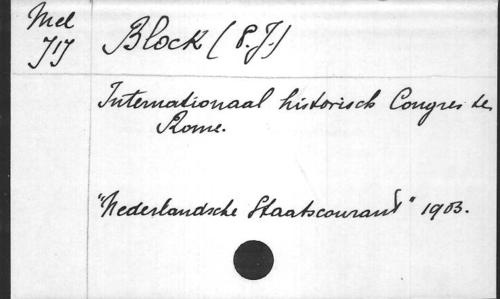 Mel
717
Block (P.J.)
Internationaal historisch Congres te
Rome.
"Nederlandsche Staatscourant" 1903.